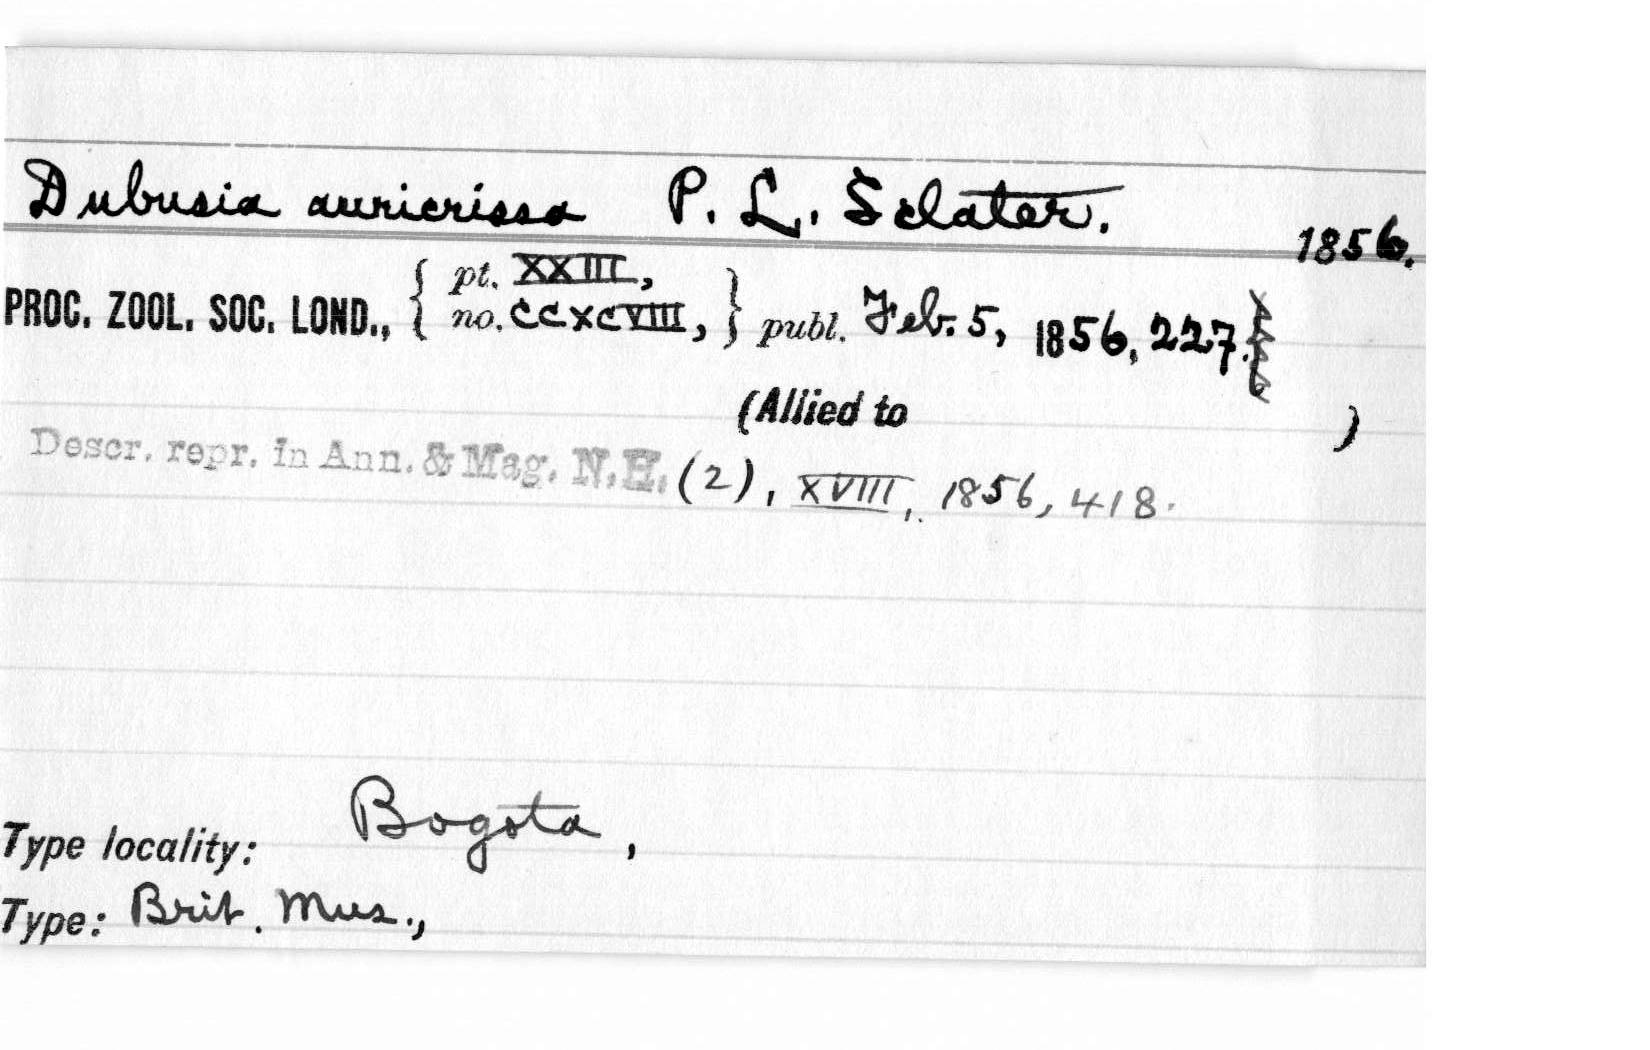 Dubusia auricrissa P. L. Sclater. 1856.
PROC. ZOOL. SOC. LOND., { pt. XXIII, no. CCXCVIII, } publ. Feb. 5, 1856, 227.
(Allied to )
Descr. repr. in Ann. & Mag. N.H. (2), XVIII, 1856, 418.
Type locality: Bogota,
Type: Brit. Mus.,